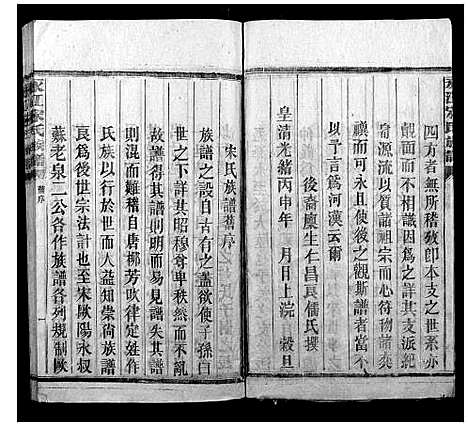 四方者無所稽攷即本支之世系亦
覿面而不相識因為之詳其支派紀
其源流以質諸祖宗而心符物諸奕
禩而可永且使後之觀斯譜者當不
以予言為河漢云爾
後裔廩生仁昌良儒氏撰
皇清光緒丙申年 月日上浣 穀旦
宋氏族譜舊序
族譜之設自古有之蓋欲使子孫百
世之下詳其昭穆尊卑秩然而不亂
故譜得其譜則明而易見譜失其譜
則混而難稽自唐柳芳吹律定姓作
氏族以行於世而人益知崇尚族譜
良為後世宗法計也至宋歐陽永叔
蘇老泉二公各作族譜各列規制歐
宋氏族譜
舊序
一